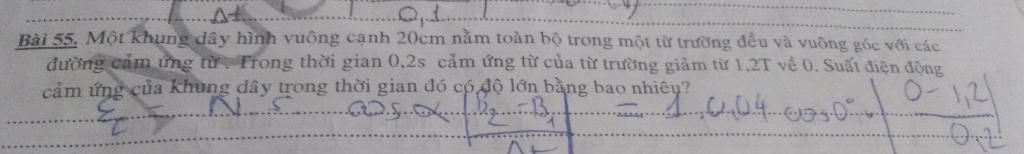 Δt 0,1
Bài 55. Một khung dây hình vuông cạnh 20cm nằm toàn bộ trong một từ trường đều và vuông góc với các
đường cảm ứng từ. Trong thời gian 0,2s cảm ứng từ của từ trường giảm từ 1,2T về 0. Suất điện động
cảm ứng của khung dây trong thời gian đó có độ lớn bằng bao nhiêu?
= N. S. cos α |B₂ - B₁ / Δt| = 1. 0,04 cos 0° . |0 - 1,2 / 0,2|